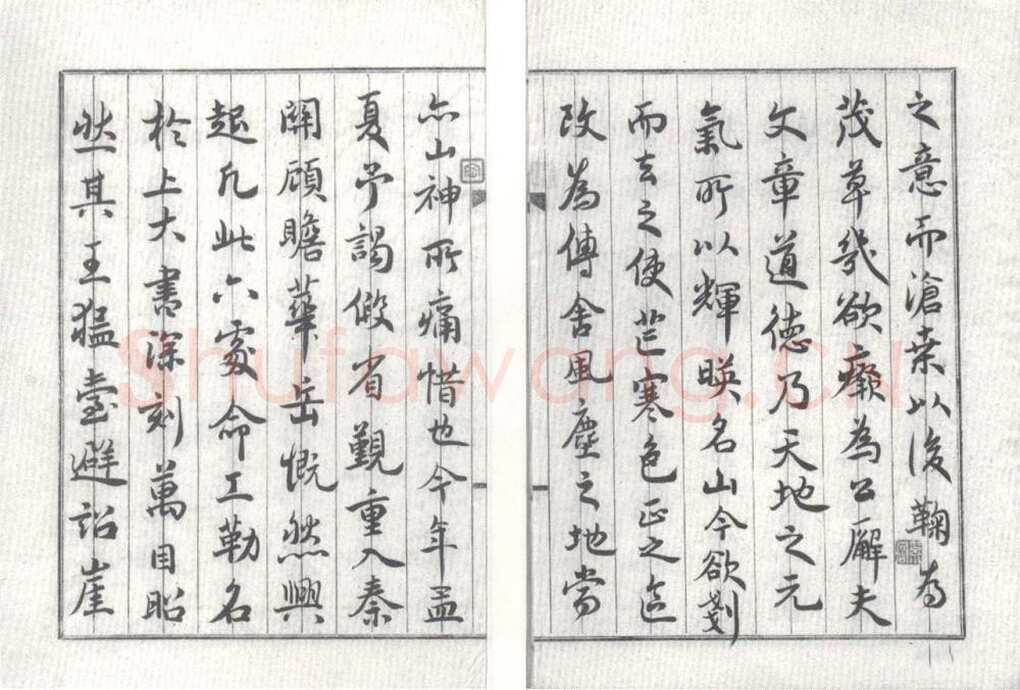 之意而滄桒以後鞠為
茂草幾欲癈為公廨夫
文章道德乃天地之元
氣所以輝暎名山今欲剗
而去之使芒寒色正之區
改為傳舍風塵之地當
亦山神所痛惜也今年孟
夏予謁假省覲重入秦
關顧瞻華岳慨然興
起凡此六處命工勒名
於上大書深刻萬目昭
然其王猛臺避詔崖
Shufawang.cn